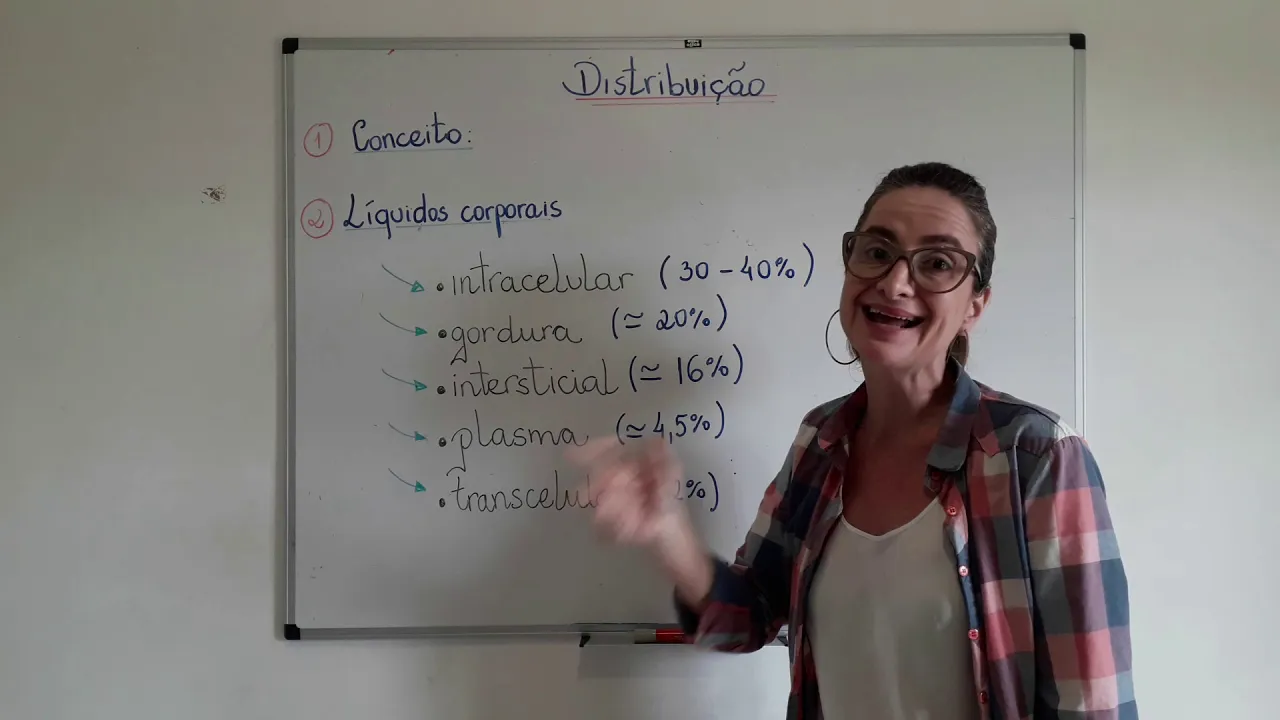 Distribuição
1 Conceito:
2 Líquidos corporais
• intracelular (30 - 40%)
• gordura (≃ 20%)
• intersticial (≃ 16%)
• plasma (≃ 4,5%)
• 2%)